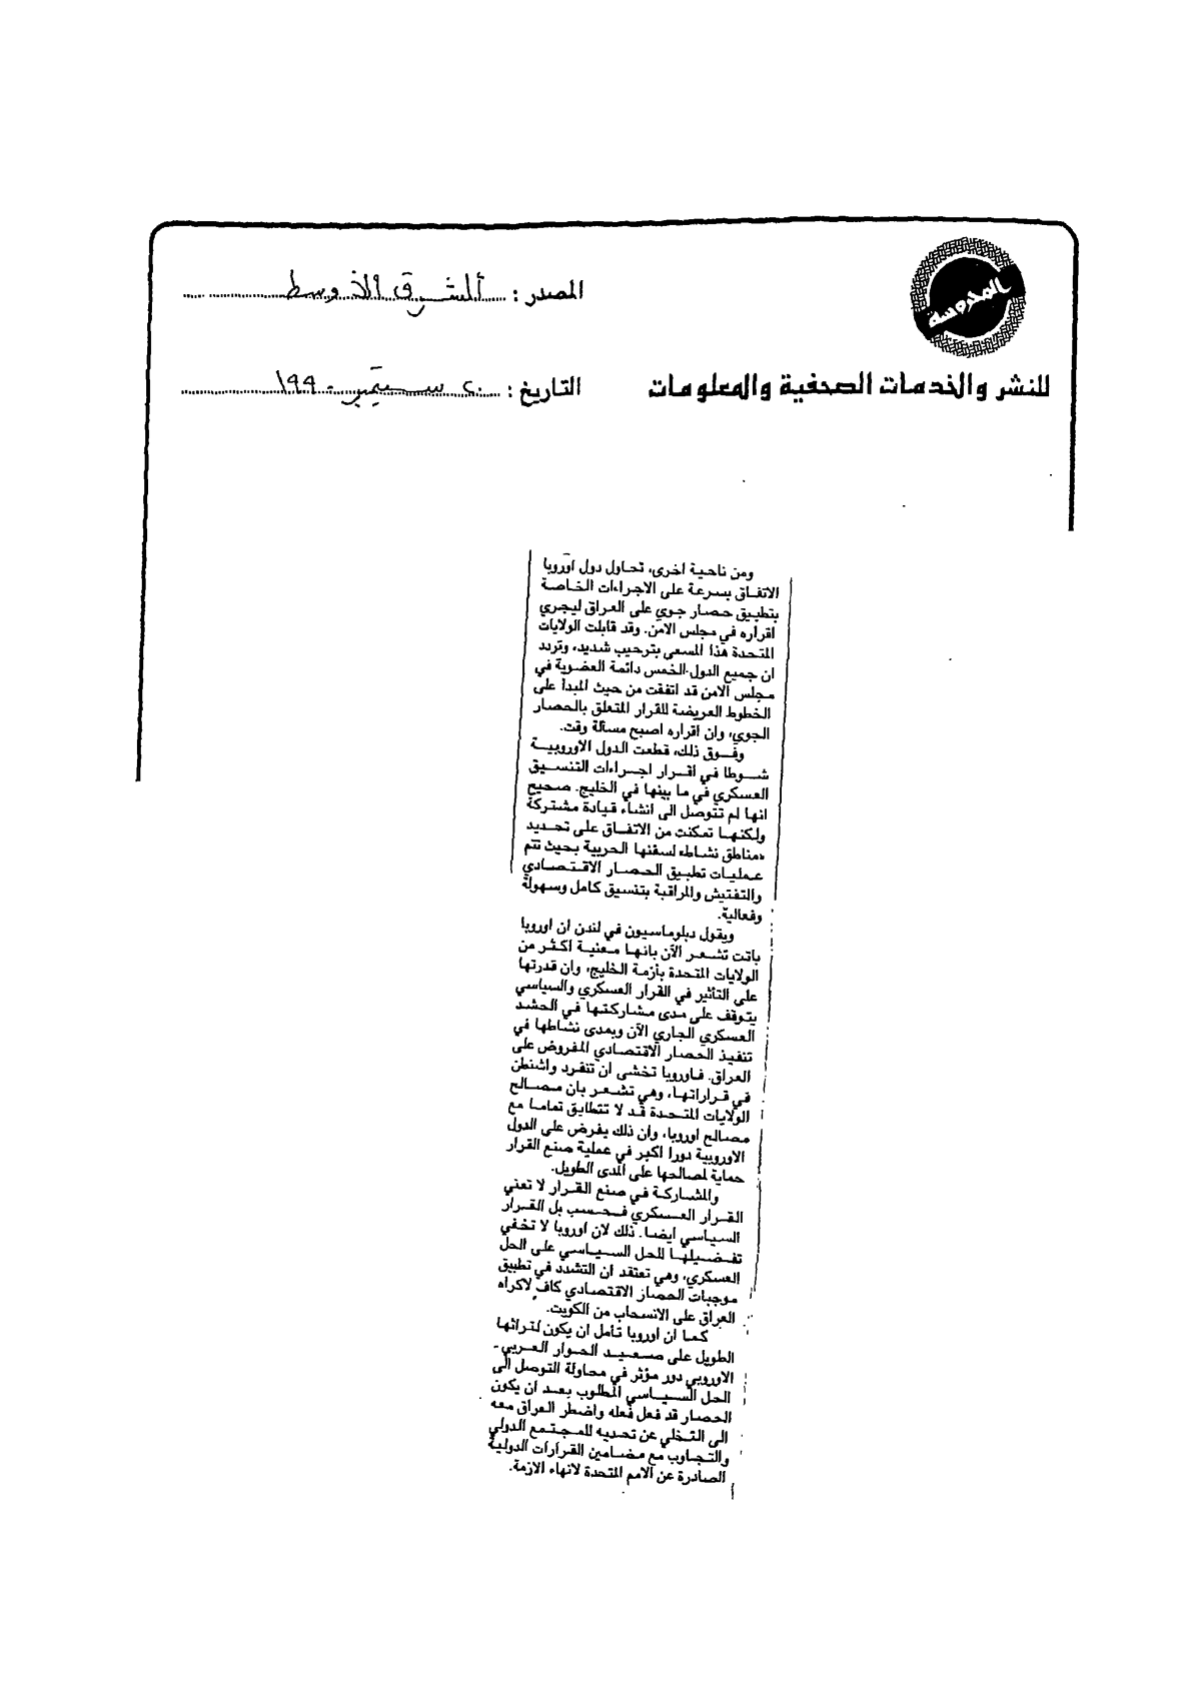 المحروسة
للنشر والخدمات الصحفية والمعلومات
المصدر : الشرق الأوسط
التاريخ : ٢٠ سبتمبر ١٩٩٠
ومن ناحية اخرى، تحاول دول اوروبا
الاتفاق بسرعة على الاجراءات الخاصة
بتطبيق حصار جوي على العراق ليجري
اقراره في مجلس الامن. وقد قابلت الولايات
المتحدة هذا المسعى بترحيب شديد، وتردد
ان جميع الدول الخمس دائمة العضوية في
مجلس الامن قد اتفقت من حيث المبدأ على
الخطوط العريضة للقرار المتعلق بالحصار
الجوي، وان اقراره اصبح مسألة وقت.
وفوق ذلك، قطعت الدول الاوروبية
شوطا في اقرار اجراءات التنسيق
العسكري في ما بينها في الخليج. صحيح
انها لم تتوصل الى انشاء قيادة مشتركة
ولكنها تمكنت من الاتفاق على تحديد
«مناطق نشاط» لسفنها الحربية بحيث تتم
عمليات تطبيق الحصار الاقتصادي
والتفتيش والمراقبة بتنسيق كامل وسهولة
وفعالية.
ويقول دبلوماسيون في لندن ان اوروبا
باتت تشعر الآن بانها معنية اكثر من
الولايات المتحدة بأزمة الخليج، وان قدرتها
على التأثير في القرار العسكري والسياسي
يتوقف على مدى مشاركتها في الحشد
العسكري الجاري الآن وبمدى نشاطها في
تنفيذ الحصار الاقتصادي المفروض على
العراق. فاوروبا تخشى ان تنفرد واشنطن
في قراراتها، وهي تشعر بان مصالح
الولايات المتحدة قد لا تتطابق تماما مع
مصالح اوروبا، وان ذلك يفرض على الدول
الاوروبية دورا اكبر في عملية صنع القرار
حماية لمصالحها على المدى الطويل.
والمشاركة في صنع القرار لا تعني
القرار العسكري فحسب بل القرار
السياسي أيضا. ذلك لان اوروبا لا تخفي
تفضيلها للحل السياسي على الحل
العسكري، وهي تعتقد ان التشدد في تطبيق
موجبات الحصار الاقتصادي كاف لاكراه
العراق على الانسحاب من الكويت.
كما ان اوروبا تأمل ان يكون لتراثها
الطويل على صعيد الحوار العربي -
الاوروبي دور مؤثر في محاولة التوصل الى
الحل السياسي المطلوب بعد ان يكون
الحصار قد فعل فعله واضطر العراق معه
الى التخلي عن تحديه للمجتمع الدولي
والتجاوب مع مضامين القرارات الدولية
الصادرة عن الامم المتحدة لانهاء الازمة.